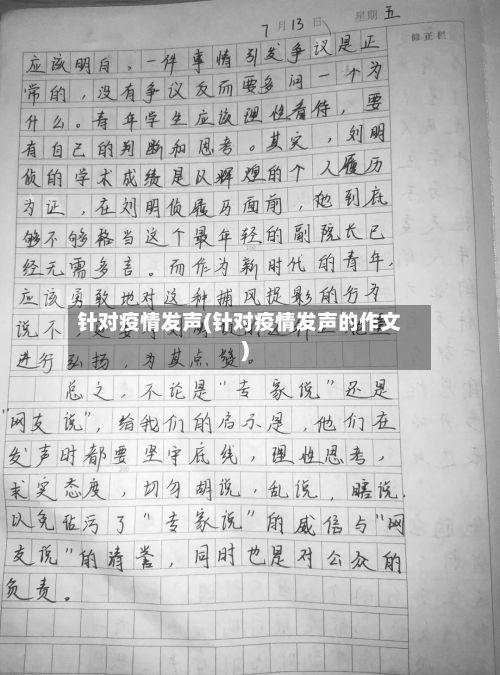 7月13日 星期五
修正栏
应该明白。一件事情引发争议是正
常的，没有争议反而要多问一个为
什么。青年学生应该理性看待，要
有自己的判断和思考。其实，刘明
侦的学术成绩是以辉煌的个人履历
为证，在刘明侦履历面前，她到底
够不够格当这个最年轻的副院长已
经无需多言。而作为新时代的青年，
应该勇敢地对这种捕风捉影的行为
说不
针对疫情发声(针对疫情发声的作文
)
进行弘扬，为其点赞。
总之，不论是“专家说”还是
“网友说”，给我们的启示是，他们在
发声时都要坚守底线，理性思考，
求实态度，切勿胡说，乱说，瞎说．
以免玷污了“专家说”的威信与“网
友说”的清誉，同时也是对公众的
负责。